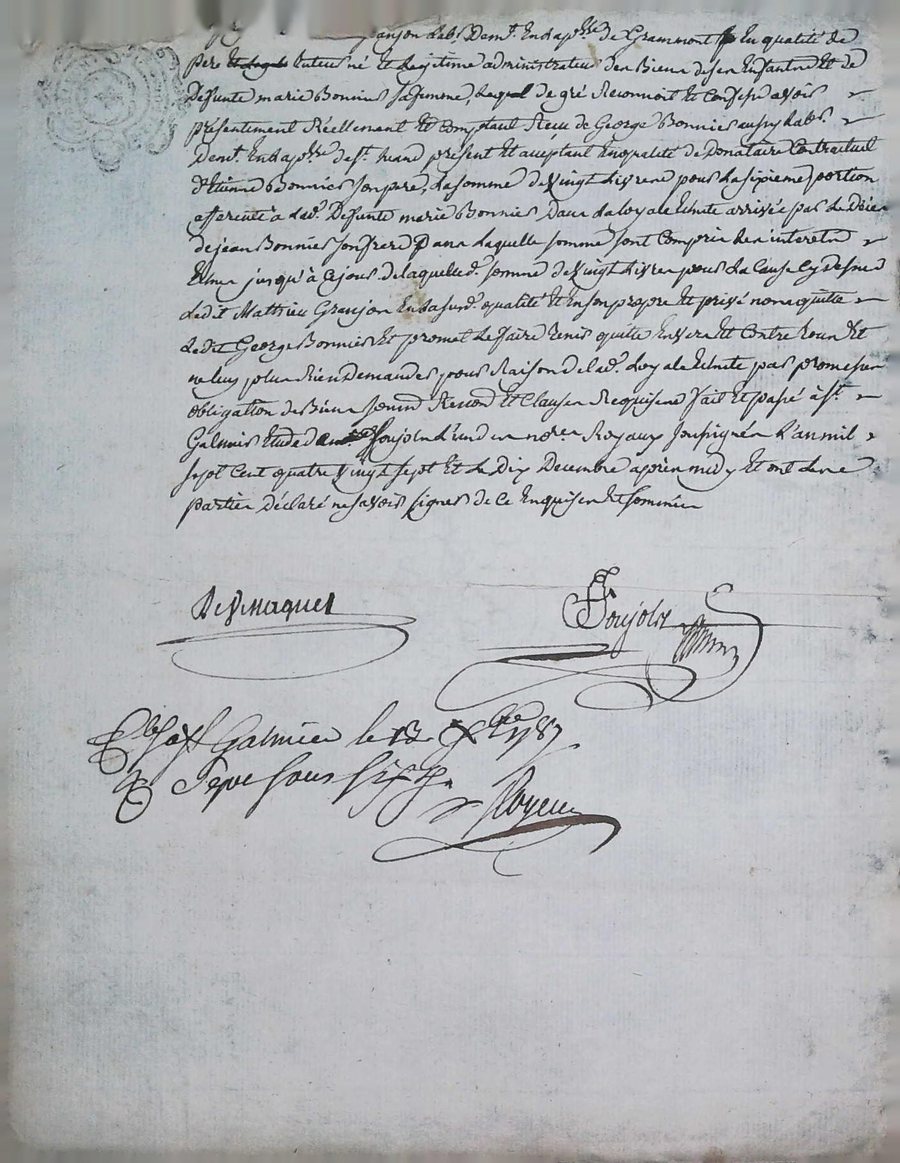 granjon hab. dem.t En la p.sse de Grammont En qualité de
pere tuteur né et Legitime administrateur des Biens de ses Enfants Et de
Defunte marie Bonnier sa femme, Lequel de gré Reconnoit Et Confesse avoir
présentement Réellement Et Comptant Reçu de George Bonnier aussy hab.
dem.t En la p.sse de st. present Et acceptant En qualité de Donataire Contractuel
d'Etienne Bonnier son pere, La somme de Vingt Livres pour La sixieme portion
afferente à lad.e Defunte marie Bonnier Dans La loyale Echute arrivée par Le Décès
de jean Bonnier son frere dans laquelle somme sont Compris Les interets
jusqu'à Ce jour de laquelle d. somme de Vingt Livres pour La Cause Cy dessus
Ledit Mathieu Granjon En sa susd. qualité Et En son propre Et privé nom quitte
Ledit George Bonnier Et promet Le faire tenir quitte Envers Et Contre tous Et
ne luy plus Rien Demander pour Raison de lad.e Loyale Echute par promesses
obligation de Biens Renon.d Et Clauses Requises fait Et passé à st.
Galmier Etude de Poujols L'un des no.res Royaux soussignés L'an mil
sept Cent quatre Vingt sept Et Le Dix Decembre après midy Et ont Les
parties Déclaré ne savoir signer de Ce Enquises Et sommées
Poujols
C.lé a st Galmier le 13 Xbre 1787